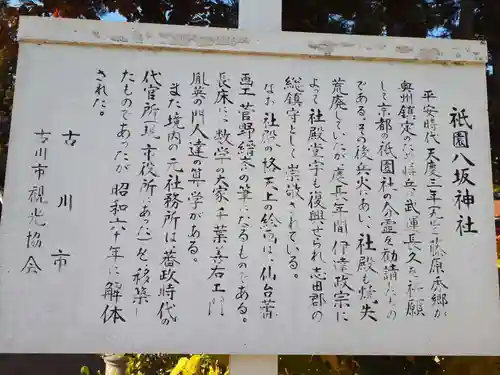 祇園八坂神社
平安時代天慶三年(九四〇)藤原秀郷が
奥州鎮定のため将兵の武運長久を祈願
して京都の祇園社の分霊を勧請したの
である。その後兵火にあい、社殿も焼失
荒廃していたが慶長年間伊達政宗に
よって社殿堂宇も復興せられ志田郡の
総鎮守として崇敬されている。
なお社殿の格天上の絵画は、仙台藩
画工菅野の筆になるものである。
長床に、数学の大家千葉善右エ門
胤英の門人達の算学がある。
また境内の元社務所は藩政時代の
代官所(現市役所にあった)を移築し
たものであったが昭和六十年に解体
された。
古川市
古川市観光協会